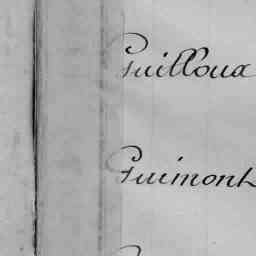 Guilloua
Guimont